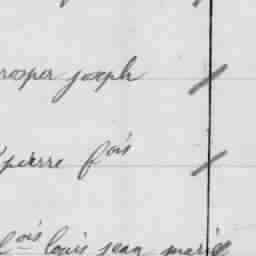 rosper joseph
pierre fois
lois louis jean marie